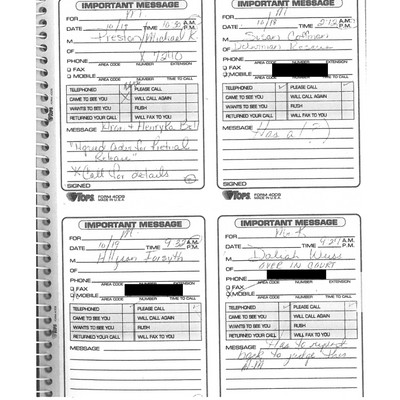 IMPORTANT MESSAGE
FOR
DATE 10/19 TIME 10:30 A.M. P.M.
M Preston/Michael K
OF
PHONE X 72110
AREA CODE NUMBER EXTENSION
FAX
MOBILE
AREA CODE NUMBER TIME TO CALL
TELEPHONED PLEASE CALL
CAME TO SEE YOU WILL CALL AGAIN
WANTS TO SEE YOU RUSH
RETURNED YOUR CALL WILL FAX TO YOU
MESSAGE
for
Release"
*Call for details
SIGNED
TOPS FORM 4009
MADE IN U.S.A.
IMPORTANT MESSAGE
FOR
DATE 10/19 TIME A.M. P.M.
M Susan
OF
PHONE
AREA CODE NUMBER EXTENSION
FAX
MOBILE
AREA CODE NUMBER TIME TO CALL
TELEPHONED PLEASE CALL
CAME TO SEE YOU WILL CALL AGAIN
WANTS TO SEE YOU RUSH
RETURNED YOUR CALL WILL FAX TO YOU
MESSAGE
Has a (?)
SIGNED
TOPS FORM 4009
MADE IN U.S.A.
IMPORTANT MESSAGE
FOR M
DATE 10/19 TIME 9:32 A.M. P.M.
M Allyson Forsyth
OF
PHONE
AREA CODE NUMBER EXTENSION
FAX
MOBILE
AREA CODE NUMBER TIME TO CALL
TELEPHONED PLEASE CALL
CAME TO SEE YOU WILL CALL AGAIN
WANTS TO SEE YOU RUSH
RETURNED YOUR CALL WILL FAX TO YOU
MESSAGE
IMPORTANT MESSAGE
FOR Mr. K
DATE 10/19 TIME 9:27 A.M. P.M.
M Daliah Weiss
OF OVER IN COURT
PHONE
AREA CODE NUMBER EXTENSION
FAX
MOBILE
AREA CODE NUMBER TIME TO CALL
TELEPHONED PLEASE CALL
CAME TO SEE YOU WILL CALL AGAIN
WANTS TO SEE YOU RUSH
RETURNED YOUR CALL WILL FAX TO YOU
MESSAGE Has to report
back to judge this
A.M